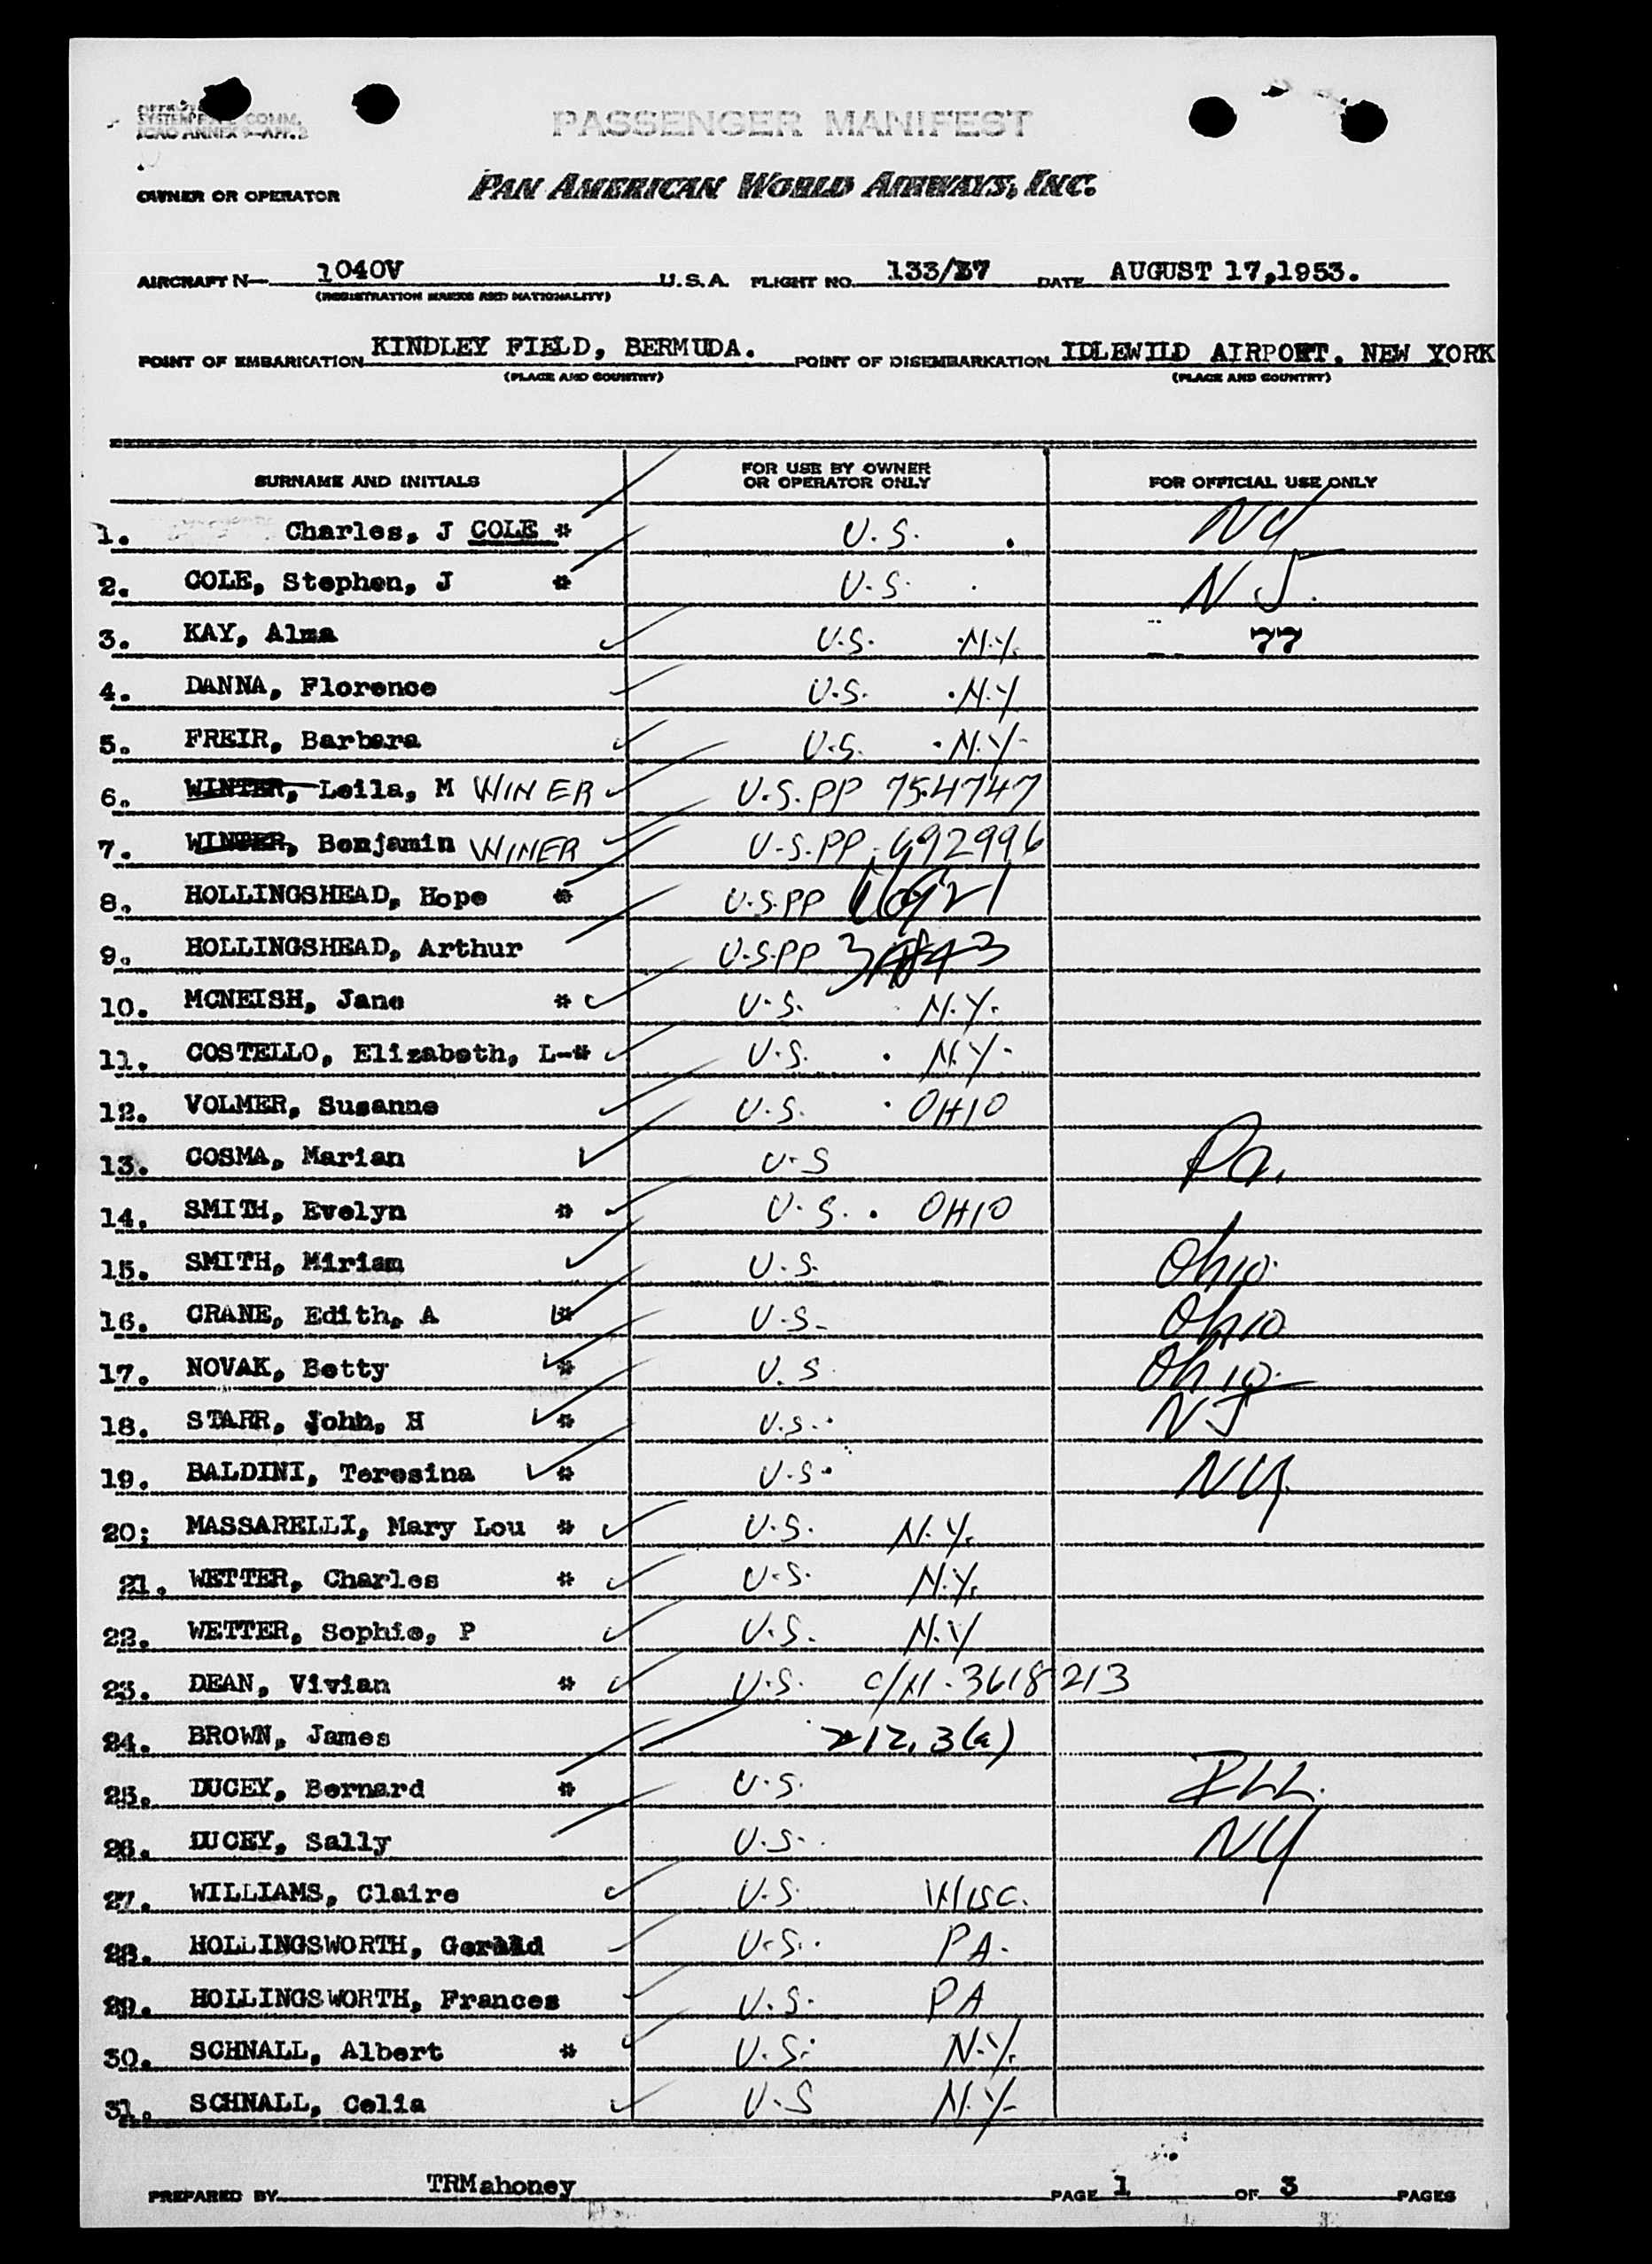 COMM.
ICAO ANNEX 9-APP. 3
PASSENGER MANIFEST
OWNER OR OPERATOR PAN AMERICAN WORLD AIRWAYS, INC.
AIRCRAFT N— 1040V U.S.A. FLIGHT NO. 133/37 DATE AUGUST 17,1953.
(REGISTRATION MARKS AND NATIONALITY)
POINT OF EMBARKATION KINDLEY FIELD, BERMUDA. POINT OF DISEMBARKATION IDLEWILD AIRPORT. NEW YORK
(PLACE AND COUNTRY) (PLACE AND COUNTRY)
SURNAME AND INITIALS FOR USE BY OWNER OR OPERATOR ONLY FOR OFFICIAL USE ONLY
1. Charles, J COLE * U.S. NY
2. COLE, Stephen, J * U.S. NJ.
3. KAY, Alma U.S. N.Y. 77
4. DANNA, Florence U.S. N.Y
5. FREIR, Barbara U.S. N.Y
6. WINTER, Leila, M WINER U.S.PP 754747
7. WINTER, Benjamin WINER U.S.PP. 692996
8. HOLLINGSHEAD, Hope * U.S.PP
9. HOLLINGSHEAD, Arthur U.S.PP
10. MCNEISH, Jane * U.S. N.Y.
11. COSTELLO, Elizabeth, L-* U.S. N.Y.
12. VOLMER, Susanne U.S. OHIO
13. COSMA, Marian U.S Pa.
14. SMITH, Evelyn * U.S. OHIO
15. SMITH, Miriam U.S. Ohio
16. CRANE, Edith, A * U.S. Ohio
17. NOVAK, Betty * U.S. Ohio
18. STARR, John, H * U.S. NJ
19. BALDINI, Teresina * U.S. NY.
20: MASSARELLI, Mary Lou * U.S. N.Y.
21. WETTER, Charles * U.S. N.Y.
22. WETTER, Sophie, P U.S. N.Y
23. DEAN, Vivian * U.S. C/N. 3618213
24. BROWN, James 212.3(a)
25. DUCEY, Bernard * U.S. ILL.
26. DUCEY, Sally U.S. NY
27. WILLIAMS, Claire U.S. WISC.
28. HOLLINGSWORTH, Gerald U.S. PA.
29. HOLLINGSWORTH, Frances U.S. PA
30. SCHNALL, Albert * U.S. N.Y.
31. SCHNALL, Celia U.S N.Y.
PREPARED BY TRMahoney PAGE 1 OF 3 PAGES